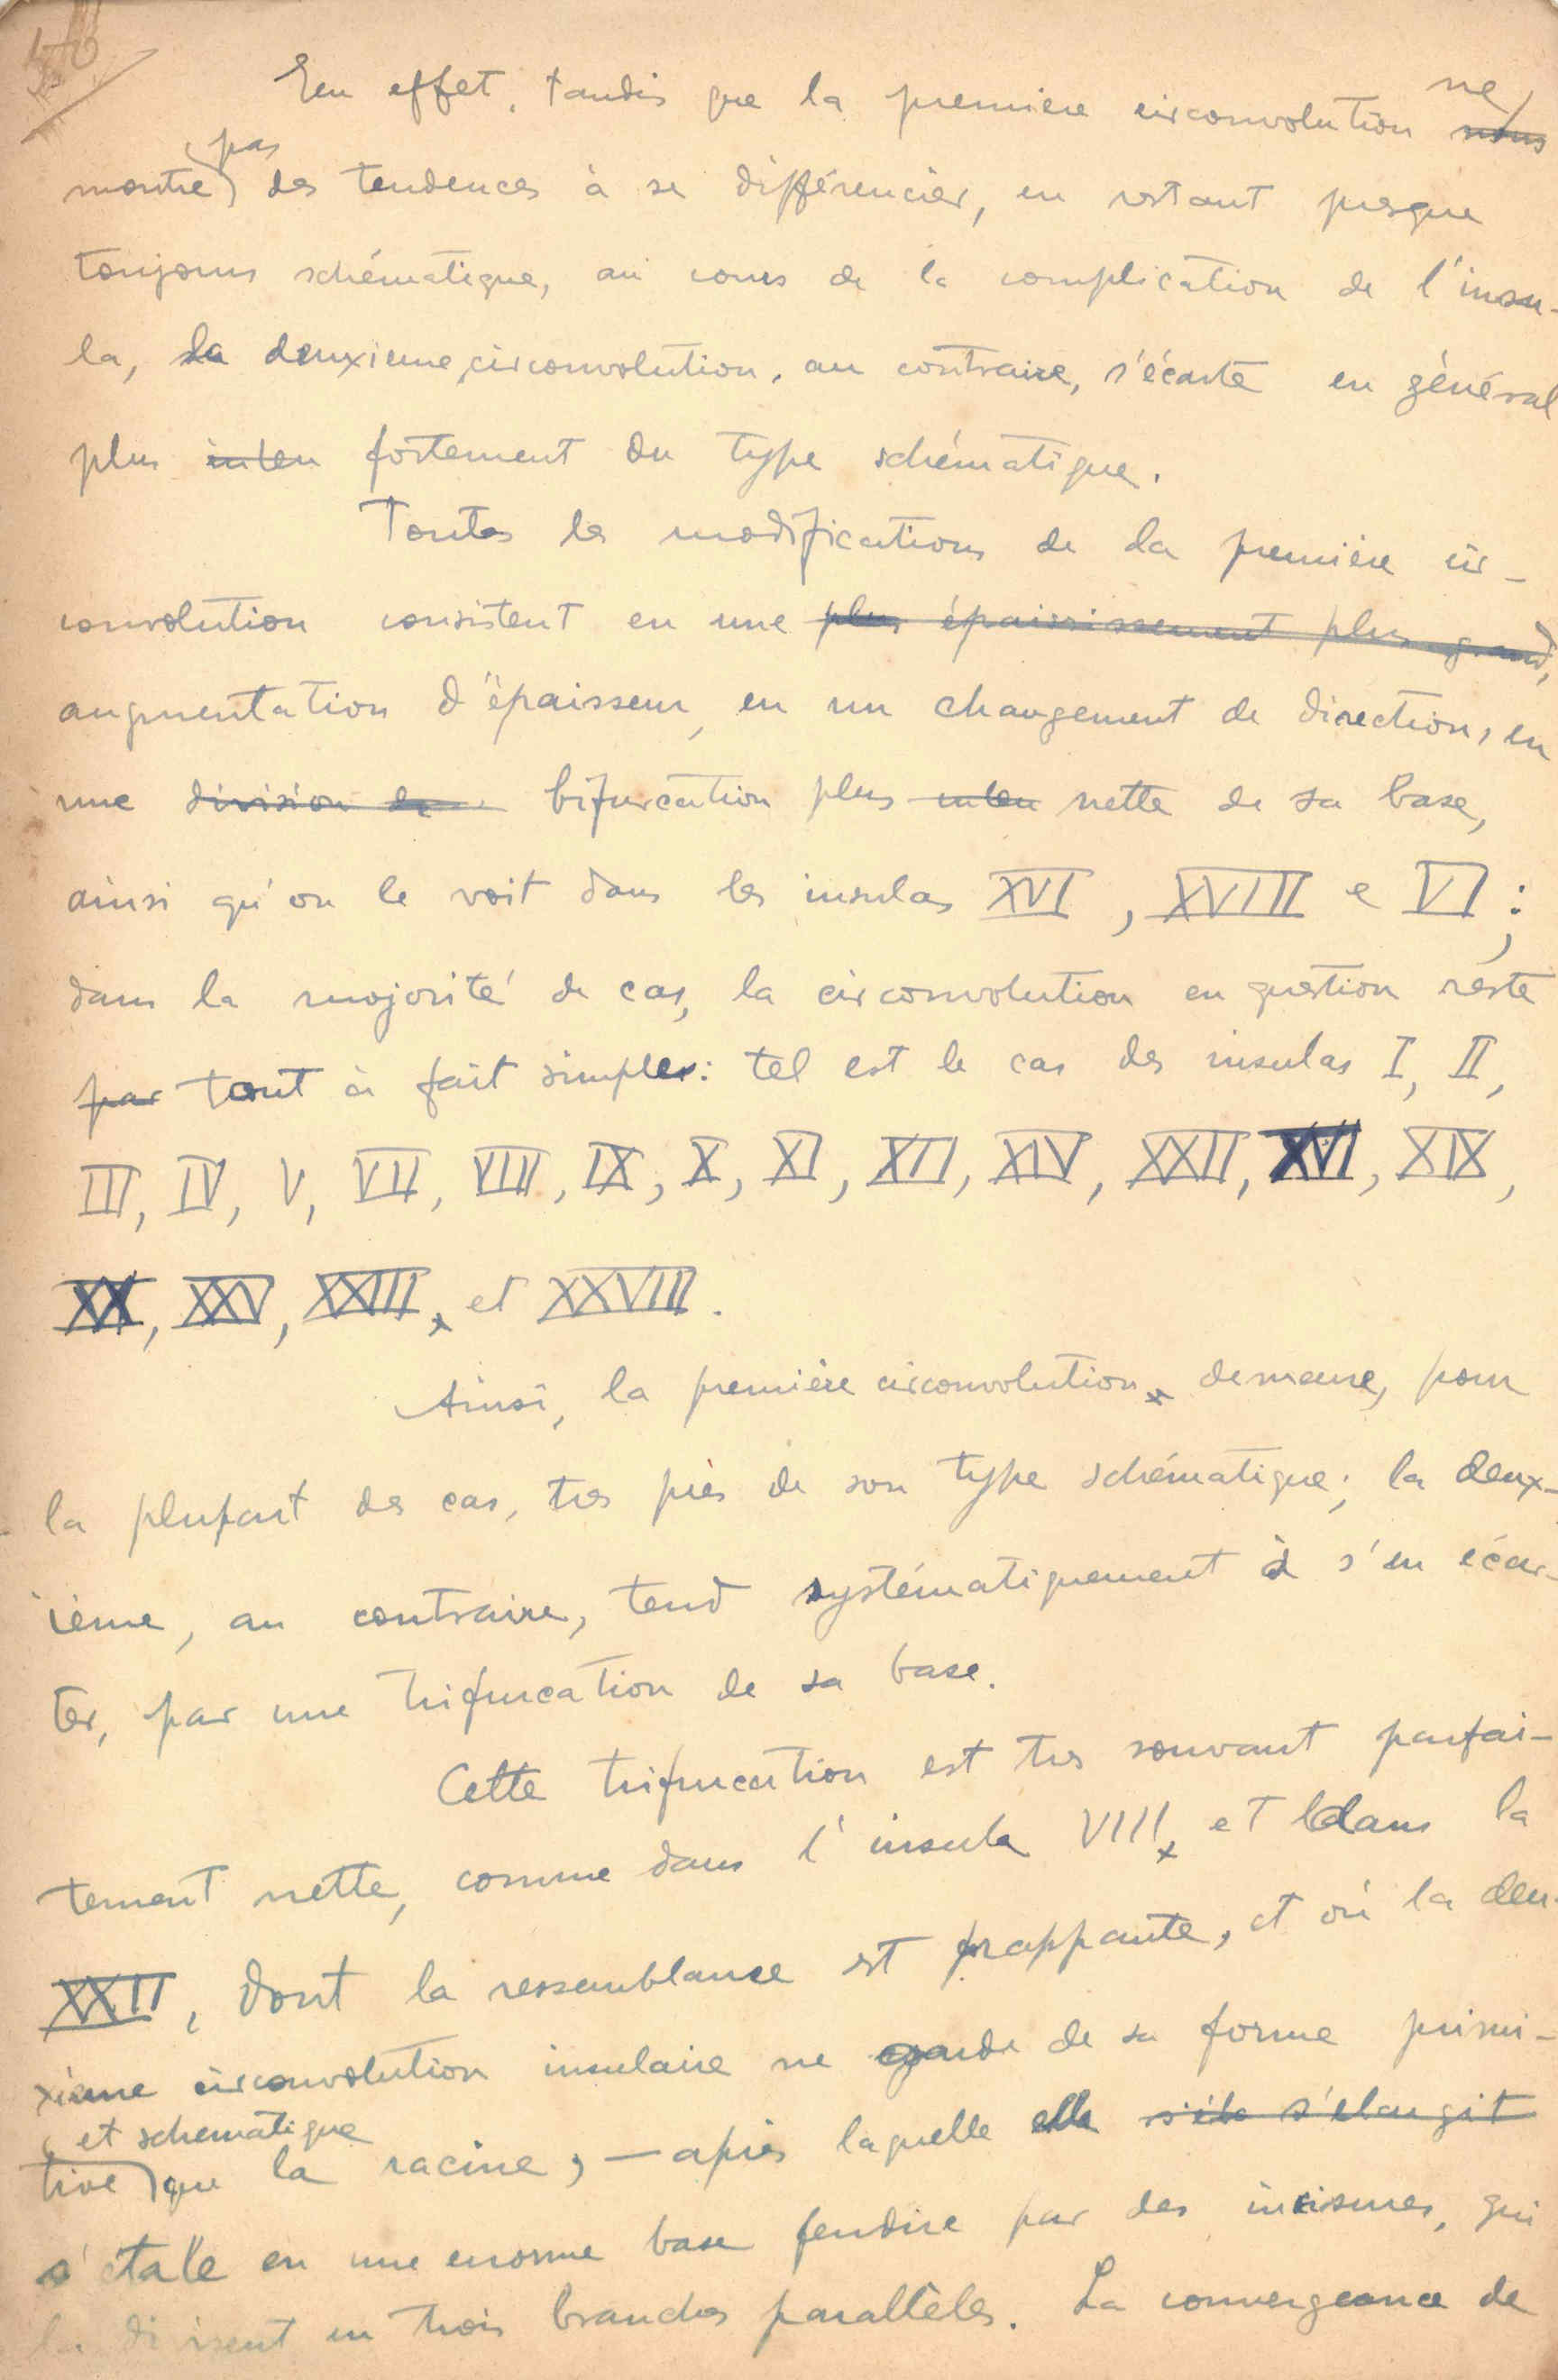 En effet, tandis que la première circonvolution ne nous
montre pas des tendences à se différencier, en restant presque
toujours schématique, au cours de la complication de l'insu-
la, la deuxieme circonvolution, au contraire, s'écarte en général
plus inten fortement du type schématique.
Toutes les modifications de la première cir-
convolution consistent en une plus épaississement plus grand,
augmentation d'épaisseur, en un changement de direction, en
une division de bifurcation plus inten nette de sa base,
ainsi qu'on le voit dans les insulas XVI, XVIII e VI;
dans la majorité de cas, la circonvolution en question reste
par tout à fait simple: tel est le cas des insulas I, II,
III, IV, V, VII, VIII, IX, X, XI, XII, XIV, XXII, XVII, XIX,
XX, XXV, XXIII, et XXVIII.
Ainsi, la première circonvolution demeure, pour
la plupart des cas, tres près de son type schématique; la deux-
ième, au contraire, tend systématiquement à s'en écar-
ter, par une trifurcation de sa base.
Cette trifurcation est tres souvant parfai-
tement nette, comme dans l'insula VIII et dans la
XXII, dont la ressemblance est frappante, et où la deu-
xième circonvolution insulaire ne garde de sa forme primi-
tive et schematique que la racine, — après laquelle elle s'élargit
s'étale en une enorme base fendue par des incisures, qui
la divisent en trois branches parallèles. La convergeance de